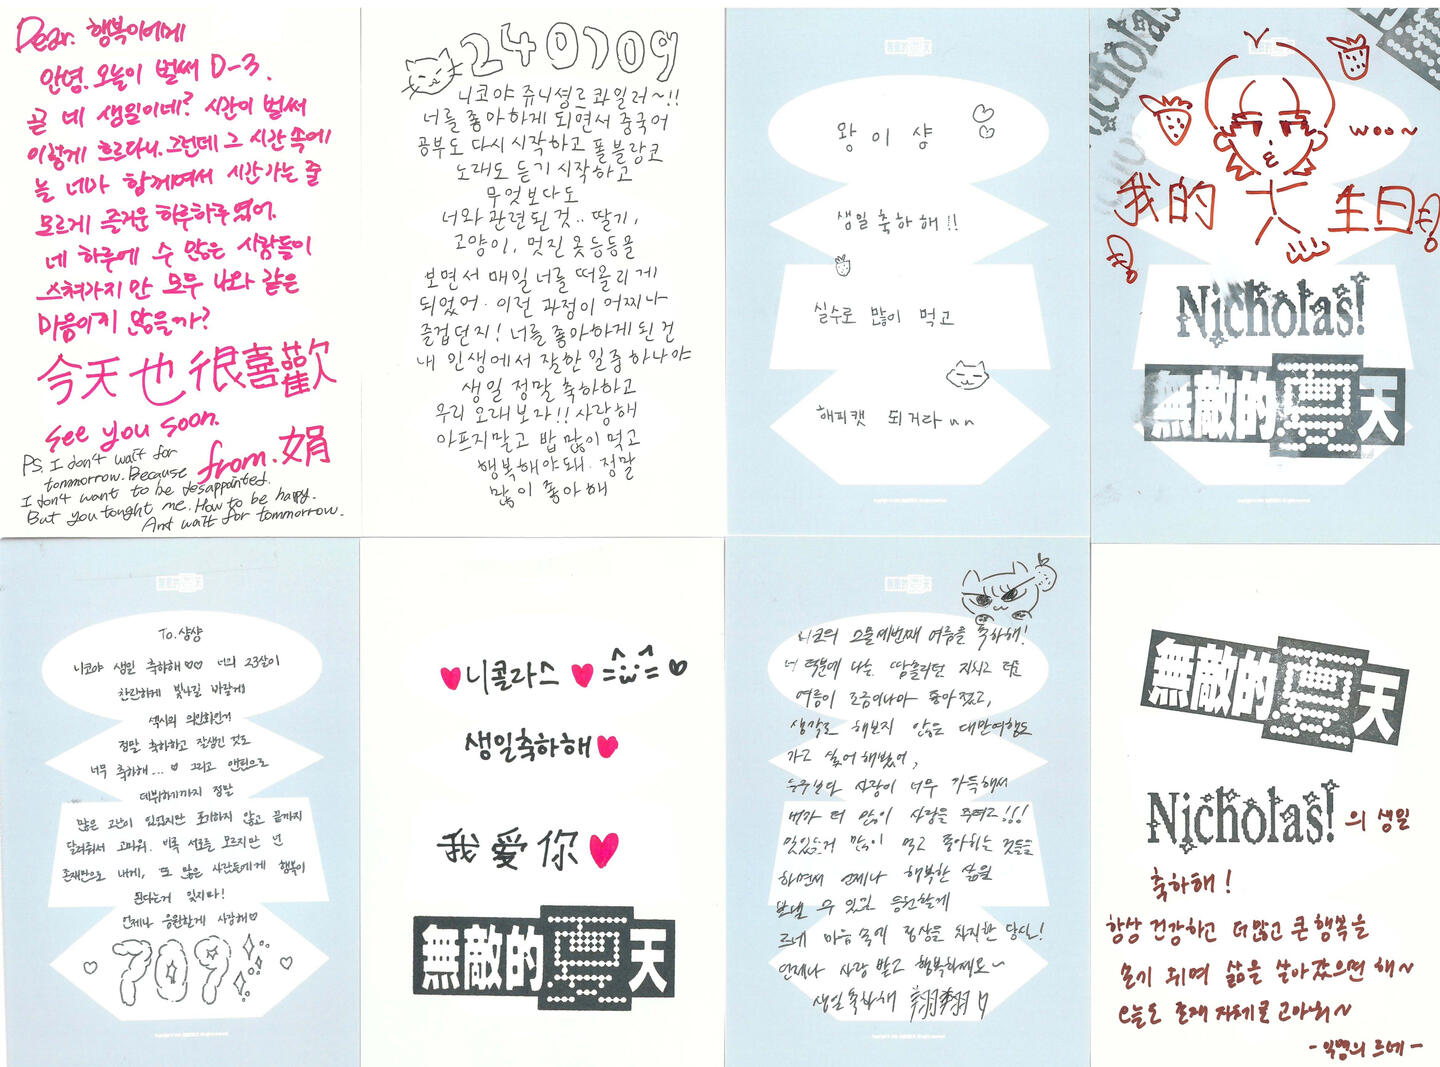 Dear. 행복이에게
안녕. 오늘이 벌써 D-3.
곧 네 생일이네? 시간이 벌써
이렇게 흐르다니. 그런데 그 시간 속에
늘 네가 함께여서 시간 가는 줄
모르게 즐거운 하루하루였어.
네 하루에 수 많은 사람들이
스쳐가지만 모두 나와 같은
마음이지 않을까?
今天也很喜歡
See you soon.
from. 娟
PS. I don't wait for
tommorrow. Because
I don't want to be desappainted.
But you tought me. How to be happy.
And wait for tommorrow.
240709
니코야 쥬니셩르콰일러~!!
너를 좋아하게 되면서 중국어
공부도 다시 시작하고 폴블랑코
노래도 듣기 시작하고
무엇보다도
너와 관련된 것.. 딸기,
고양이, 멋진 옷등등을
보면서 매일 너를 떠올리게
되었어. 이런 과정이 어찌나
즐겁던지! 너를 좋아하게 된 건
내 인생에서 잘한 일 중 하나야
생일 정말 축하하고
우리 오래 보자!! 사랑해
아프지말고 밥 많이 먹고
행복해야돼. 정말
많이 좋아해
無敵的夏天
왕이샹
생일 축하해!!
실수로 많이 먹고
해피캣 되거라
Nicholas!
woo~
我的 生日
Nicholas!
無敵的夏天
無敵的夏天
To. 샹샹
니코야 생일 축하해♡♡ 너의 23살이
찬란하게 빛나길 바랄게!
섹시의 의인화인거
정말 축하하고 잘생긴 것도
너무 축하해...♡ 그리고 앤팀으로
데뷔하기까지 정말
많은 고난이 있었지만 포기하지 않고 끝까지
달려줘서 고마워. 비록 서로를 모르지만 넌
존재만으로 내게, 또 많은 사람들에게 행복이
된다는거 잊지마!
언제나 응원할게 사랑해♡
709
♥니콜라스♥
생일축하해♥
我愛你♥
無敵的夏天
無敵的夏天
니코의 스물세번째 여름을 축하해!
너 덕분에 나는 땀흘리던 지치고 더운
여름이 조금이나마 좋아졌고,
생각도 해보지 않은 대만여행도
가고 싶어 해봤어,
누구보다 사랑이 너무 가득해서
내가 더 많이 사랑을 주려고!!!
맛있는거 많이 먹고 좋아하는 것들을
하면서 언제나 행복한 삶을
보낼 수 있길 응원할게
르네 마음 속에 정상을 차지한 당신!
언제나 사랑 받고 행복하세요~
생일축하해 翔翔
無敵的夏天
Nicholas! 의 생일
축하해!
항상 건강하고 더 많고 큰 행복을
느끼 뒤며 삶을 살아갔으면 해~
오늘도 존재 자체로 고마워~
- 익명의 르네 -